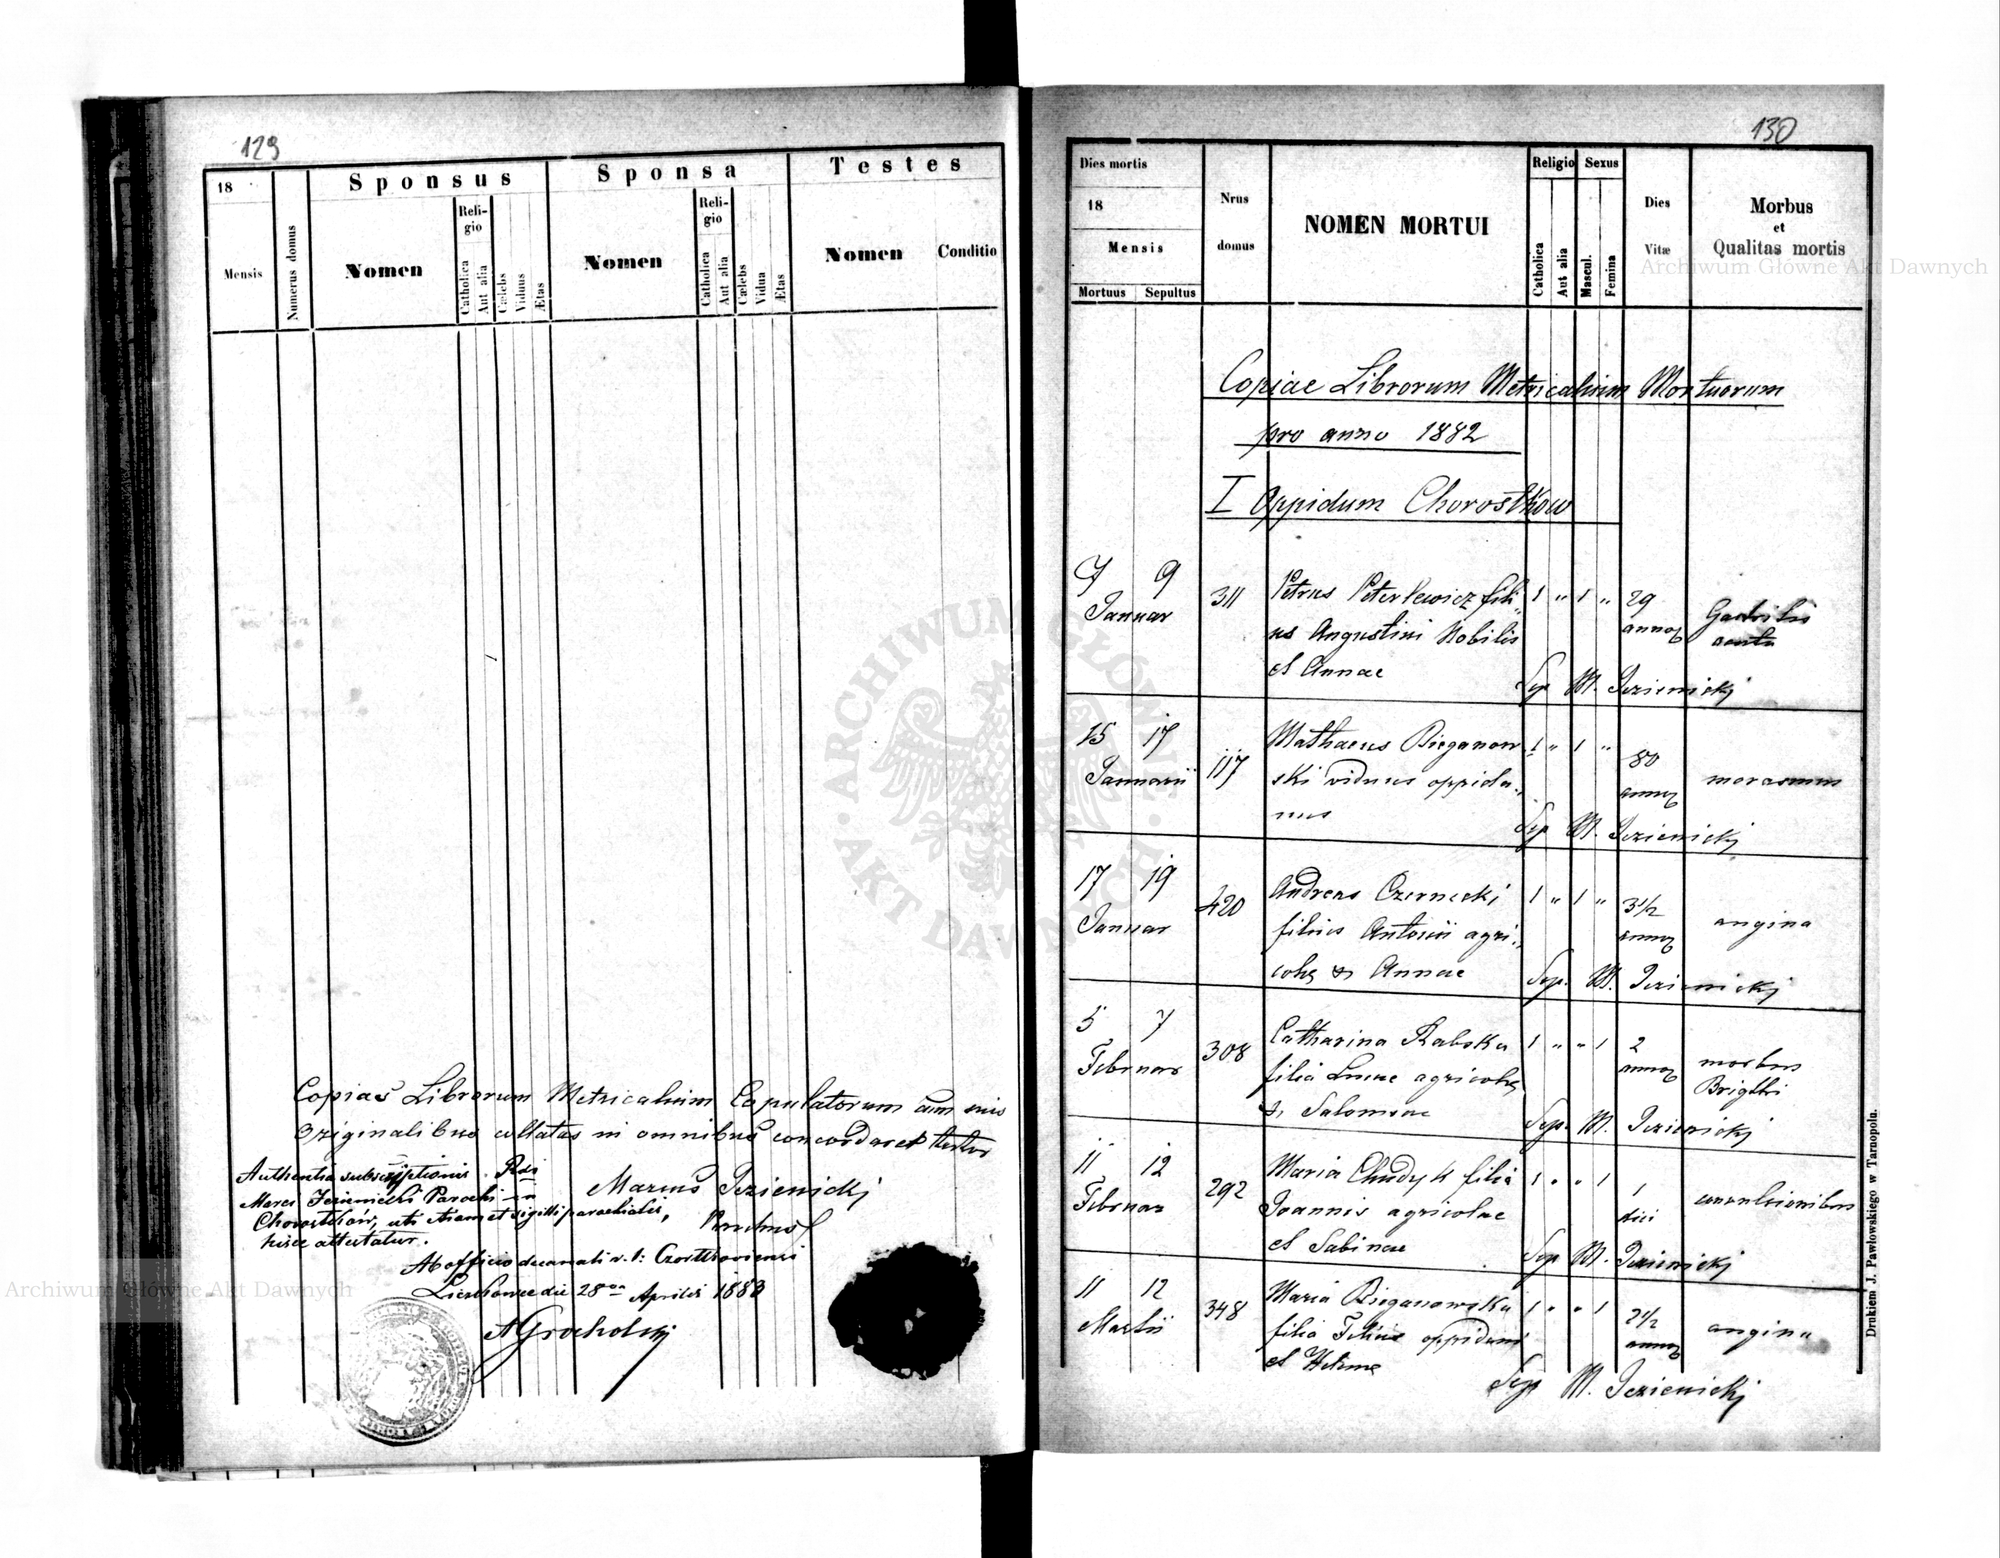 129
18
Mensis
Numerus domus
Sponsus
Nomen
Reli-
gio
Catholica
Aut alia
Cælebs
Viduus
Ætas
Sponsa
Nomen
Reli-
gio
Catholica
Aut alia
Cælebs
Vidua
Ætas
Testes
Nomen
Conditio
Copias Librorum Metricalium Copulatorum cum suis
originalibus collatas in omnibus concordare testor
Marcus Jezienicki
Authentia subscriptionis Rdi
Marci Jezienicki Parochi in
Chorostków, uti etiam et sigilli parochialis,
hisce attestatur.
Ab officio decanali r. l. Czortkoviensi
die 28va Aprilis 1883
AGrocholski
130
Dies mortis
18
Mensis
Mortuus
Sepultus
Nrus
domus
NOMEN MORTUI
Religio
Catholica
Aut alia
Sexus
Mascul.
Femina
Dies
Vitæ
Morbus
et
Qualitas mortis
Copiae Librorum Metricalium Mortuorum
pro anno 1882
I Oppidum Chorostkow
7 9 Januar 311 Petrus Peterkewicz fili- 1 " 1 " 29
us Angustini Nobilis annor
et Annae
Sep M. Jezienicki
15 17 Januarii 117 Mathaeus Bieganow 1 " 1 " 80
ski viduus oppida- annor marasmus
nus
Sep M. Jezienicki
17 19 Januar 420 Andreas Czernecki 1 " 1 " 3 1/2
filius Antonii agri- annor angina
colae et Annae
Sep. M. Jezienicki
5 7 Februar 308 Catharina Rabska 1 " " 1 2
filia Lucae agricolae annor morbus
et Salomeae Brigthi
Sep. M. Jezienicki
11 12 Februar 292 Maria Chudyk filia 1 " " 1 1
Joannis agricolae diei convulsionibus
et Sabinae
Sep M. Jezienicki
11 12 Martii 348 Maria Bieganowska 1 " " 1 2 1/2
filia Felicis oppidani annor angina
et Helenae
Sep M. Jezienicki
Drukiem J. Pawłowskiego w Tarnopolu.
ARCHIWUM GŁÓWNE
AKT DAWNYCH
Archiwum Główne Akt Dawnych
Archiwum Główne Akt Dawnych